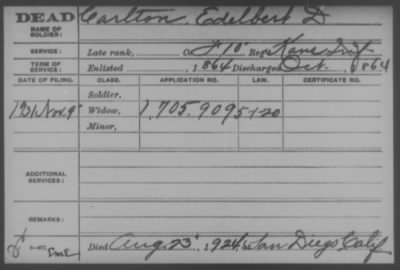 DEAD Carlton, Edelbert D
NAME OF SOLDIER:
SERVICE: Late rank, Co F, 10" Reg't Kans. Inf
TERM OF SERVICE: Enlisted , 1864 Discharged Oct. , 1864
DATE OF FILING. CLASS. APPLICATION NO. LAW. CERTIFICATE NO.
Soldier,
1931 Nov. 9" Widow, 1,705,909 5-1-20
Minor,
ADDITIONAL SERVICES:
REMARKS:
Died Aug. 23", 1924, at San Diego Calif